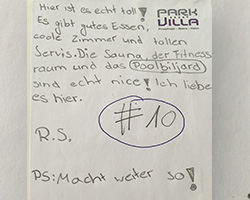 Hier ist es echt toll!
PARK
VILLA
Es gibt gutes Essen,
coole Zimmer und tollen
Servis. Die Sauna, der Fitness
raum und das Poolbiljard
sind echt nice! Ich liebe
es hier.
#10
R.S.
PS: Macht weiter so!